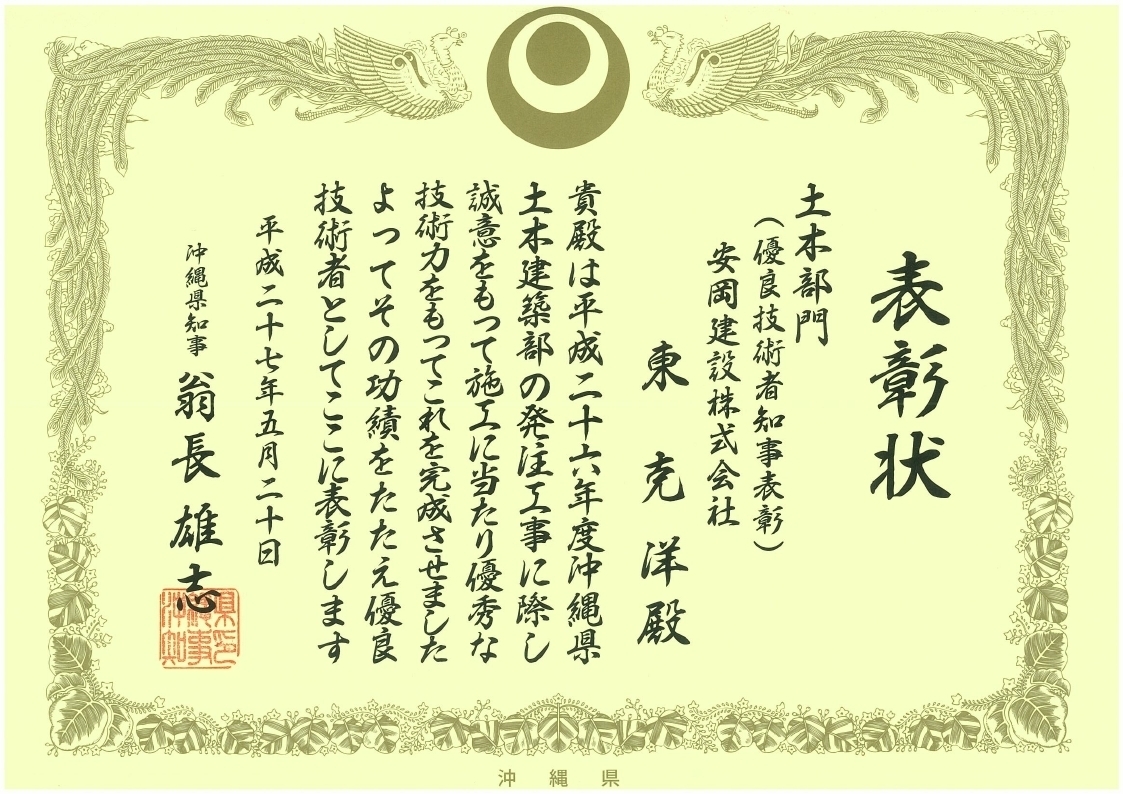 表彰状
土木部門
(優良技術者知事表彰)
安岡建設株式会社
東克洋殿
貴殿は平成二十六年度沖縄県
土木建築部の発注工事に際し
誠意をもって施工に当たり優秀な
技術力をもってこれを完成させました
よってその功績をたたえ優良
技術者としてここに表彰します
平成二十七年五月二十日
沖縄県知事 翁長雄志
沖縄県知事之印
沖縄県